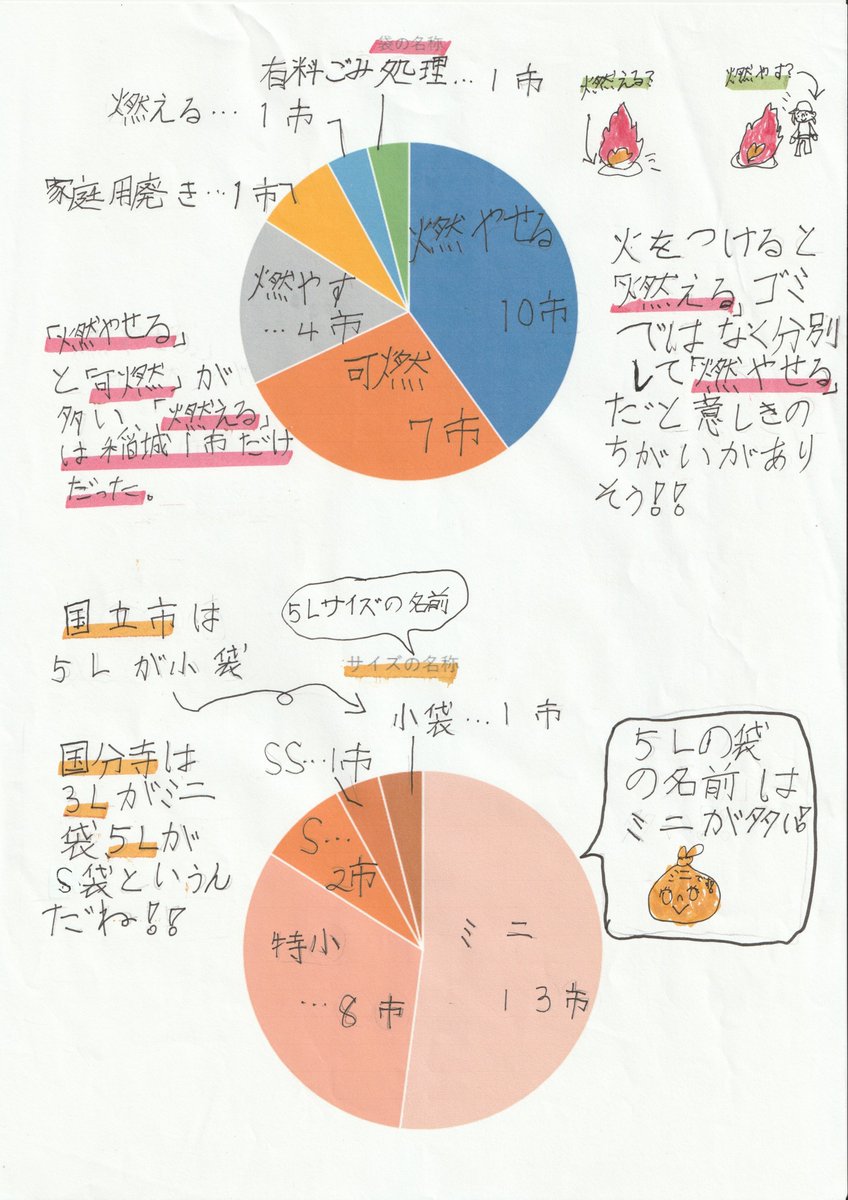 袋の名称
有料ごみ処理…1市
燃える…1市
家庭用廃き…1市
燃やせる
10市
燃やす
…4市
可燃
7市
燃える?
燃やす?
「燃やせる」
と「可燃」が
多い、「燃える」
は稲城1市だけ
だった。
火をつけると
「燃える」ゴミ
ではなく分別
して「燃やせる」
だと意しきの
ちがいがあり
そう!!
国立市は
5Lが小袋
5Lサイズの名前
サイズの名称
小袋…1市
SS…1市
S…
2市
特小
…8市
ミニ
13市
国分寺は
3Lがミニ
袋、5Lが
S袋というん
だね!!
5Lの袋
の名前は
ミニが多い!!
ミニです!